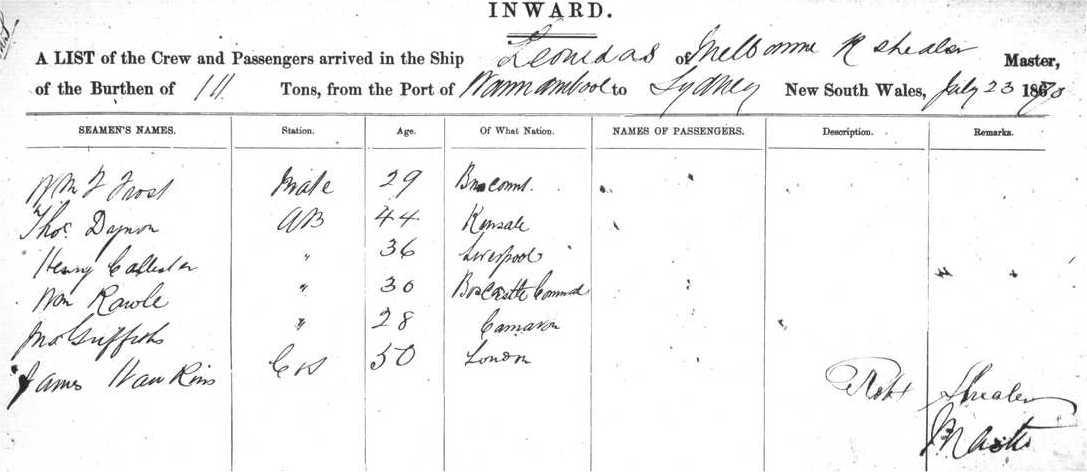 INWARD.
A LIST of the Crew and Passengers arrived in the Ship Leonidas of Melbourne R Shealer Master,
of the Burthen of 111 Tons, from the Port of Warrnambool to Sydney New South Wales, July 23 1870
SEAMEN'S NAMES. Station. Age. Of What Nation. NAMES OF PASSENGERS. Description. Remarks.
Wm Frost Mate 29
Thos. AB 44 Kinsale
Henry Callister " 36 Liverpool
Wm Rawle " 30 Boscastle
Jno Griffiths " 28 Carnavon
James Hawkins 50 London
Robt Shealer
Master